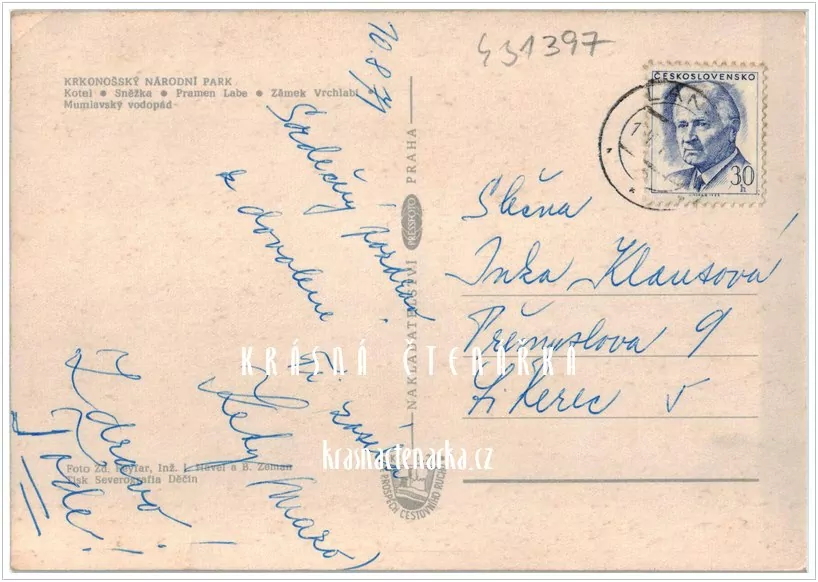 431397
10.8.71
KRKONOŠSKÝ NÁRODNÍ PARK
Kotel ● Sněžka ● Pramen Labe ● Zámek Vrchlabí ●
Mumlavský vodopád
ČESKOSLOVENSKO
30
h
Srdečný pozdrav
z dovolené
Ti zasílá
Zdravo!
NAKLADATELSTVÍ PRESSFOTO PRAHA
Slečna
Inka Klausová
Přemyslova 9
Liberec V
KRÁSNÁ ČTENÁŘKA
krasnactenarka.cz
Foto Zd. Feyfar, Inž. J. Havel a B. Zeman
Tisk Severografia Děčín
VE PROSPĚCH CESTOVNÍHO RUCHU